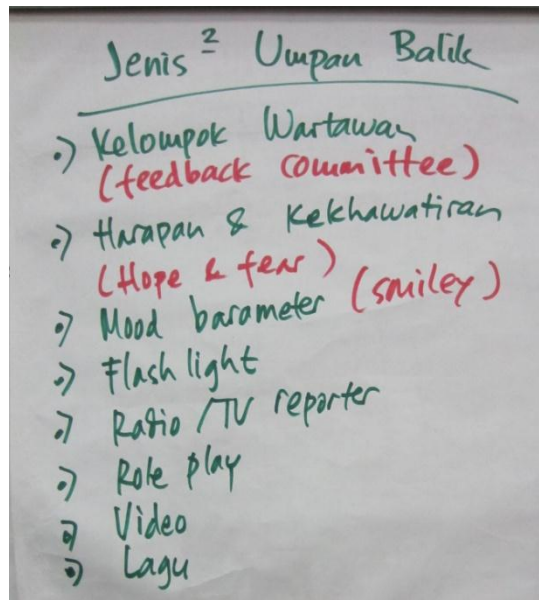 Jenis² Umpan Balik
•) Kelompok Wartawan
(feedback committee)
•) Harapan & Kekhawatiran
(Hope & fear)
•) Mood barometer (smiley)
•) Flash light
•) Ratio / TV reporter
•) Role play
•) Video
•) Lagu